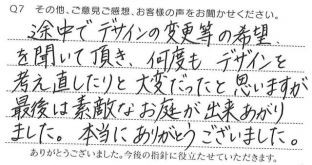 Q7 その他、ご意見ご感想、お客様の声をお聞かせください。
途中でデザインの変更等の希望
を聞いて頂き、何度もデザインを
考え直したりと大変だったと思いますが
最後は素敵なお庭が出来あがり
ました。本当にありがとうございました。
ありがとうございました。今後の指針に役立たせていただきます。